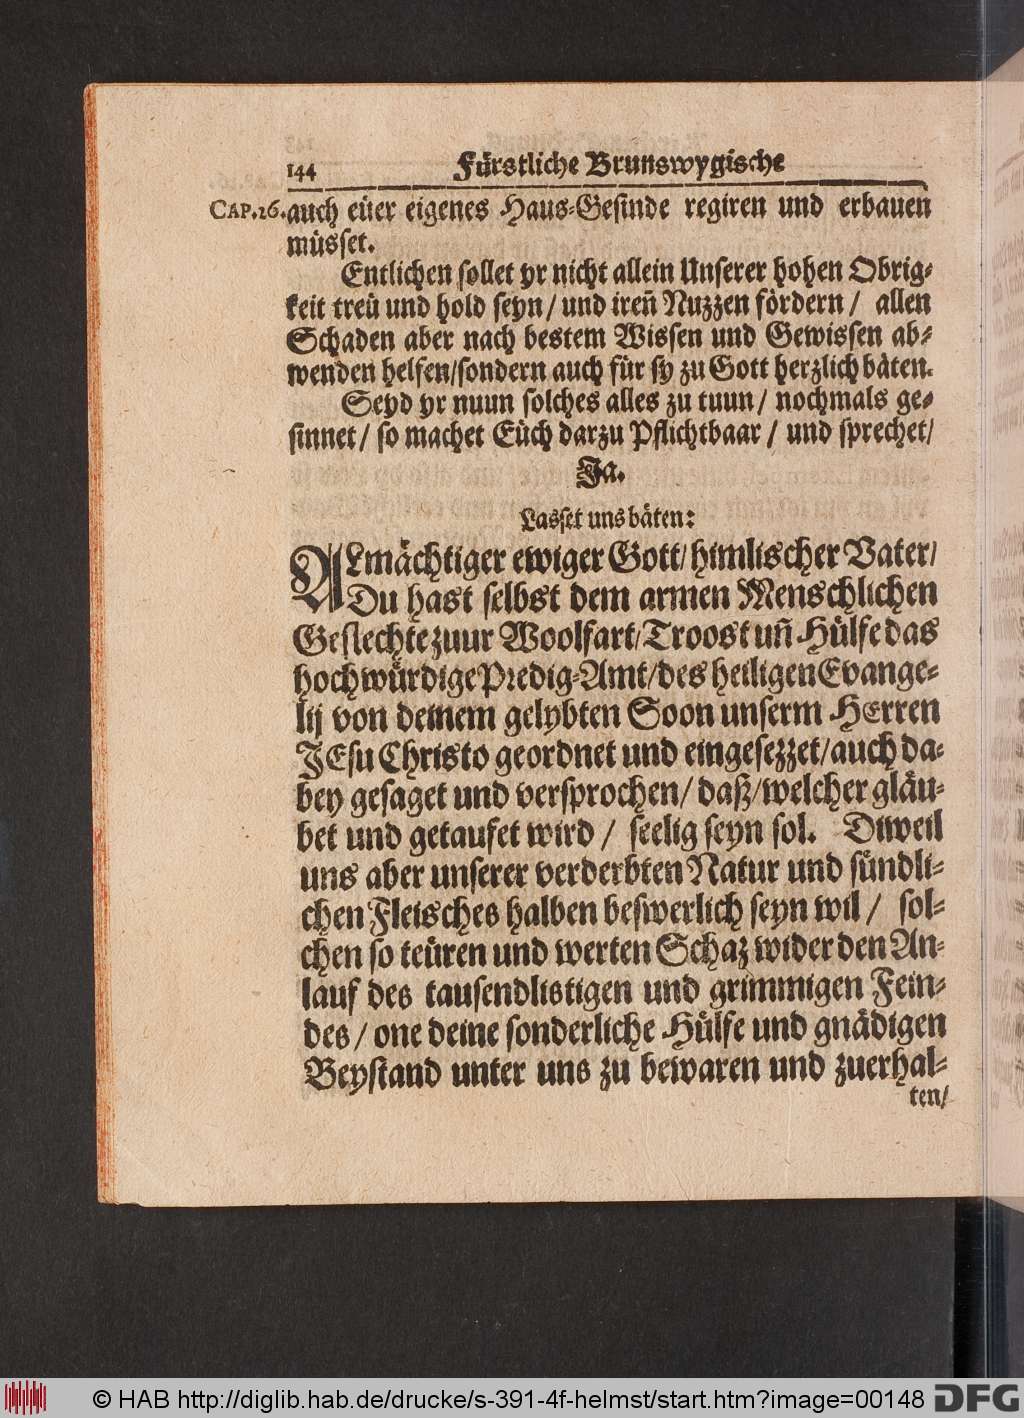 144 Fürstliche Brunswygische
CAP.26. auch eüer eigenes Haus-Gesinde regiren und erbauen
müsset.
Entlichen sollet yr nicht allein Unserer hohen Obrig-
keit treü und hold seyn/ und iren̄ Nuzzen fördern/ allen
Schaden aber nach bestem Wissen und Gewissen ab-
wenden helfen/sondern auch für sy zu Gott herzlich bäten.
Seyd yr nuun solches alles zu tuun/ nochmals ge-
sinnet/ so machet Eüch darzu Pflichtbaar/ und sprechet/
Ja.
Lasset uns bäten:
ALmächtiger ewiger Gott/himlischer Vater/
Du hast selbst dem armen Menschlichen
Geslechte zuur Woolfart/Troost un̄ Hülfe das
hochwürdige Predig-Amt/des heiligen Evange-
lij von deinem gelybten Soon unserm HErren
JEsu Christo geordnet und eingesezzet/auch da-
bey gesaget und versprochen/ daß/welcher gläu-
bet und getaufet wird/ seelig seyn sol. Diweil
uns aber unserer verderbten Natur und sündli-
chen Fleisches halben beswerlich seyn wil/ sol-
chen so teüren und werten Schaz wider den An-
lauf des tausendlistigen und grimmigen Fein-
des/ one deine sonderliche Hülfe und gnädigen
Beystand unter uns zu bewaren und zuerhal-
ten/
© HAB http://diglib.hab.de/drucke/s-391-4f-helmst/start.htm?image=00148 DFG